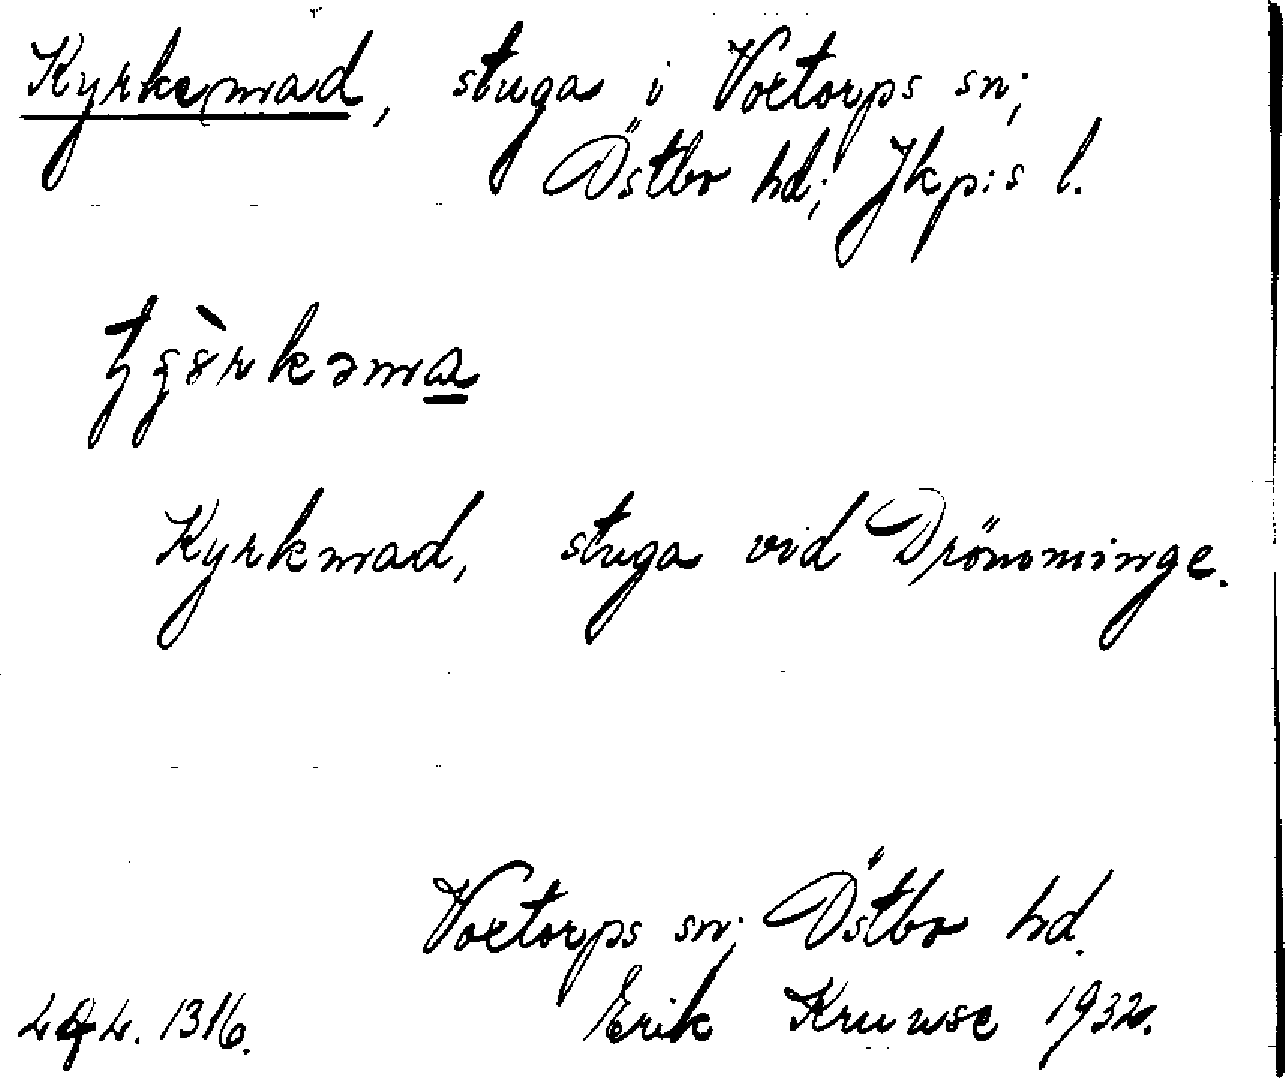 Kyrkemad, stuga i Voxtorps sn;
Östbo hd; Jkp:s l.
Kyrkmad, stuga vid Drömminge.
Voxtorps sn; Östbo hd.
1316. Erik Kruuse 1932.